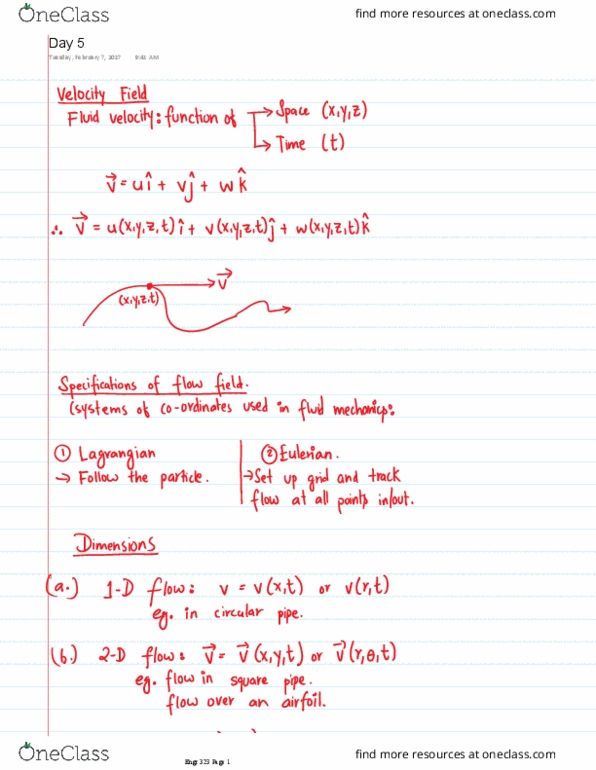 OneClass
find more resources at oneclass.com
Day 5
Tuesday, February 7, 2017 9:43 AM
Velocity Field
Fluid velocity: function of → Space (x,y,z)
→ Time (t)
V⃗ = uî + vĵ + wk̂
∴ V⃗ = u(x,y,z,t)î + v(x,y,z,t)ĵ + w(x,y,z,t)k̂
V⃗
(x,y,z,t)
Specifications of flow field.
(systems of co-ordinates used in fluid mechanics:
① Lagrangian
→ Follow the particle.
② Eulerian.
→ Set up grid and track
flow at all points in/out.
Dimensions
(a.) 1-D flow: v = v(x,t) or v(r,t)
eg. in circular pipe.
(b.) 2-D flow: V⃗ = V⃗(x,y,t) or V⃗(r,θ,t)
eg. flow in square pipe.
flow over an airfoil.
OneClass
Engr 323 Page 1
find more resources at oneclass.com